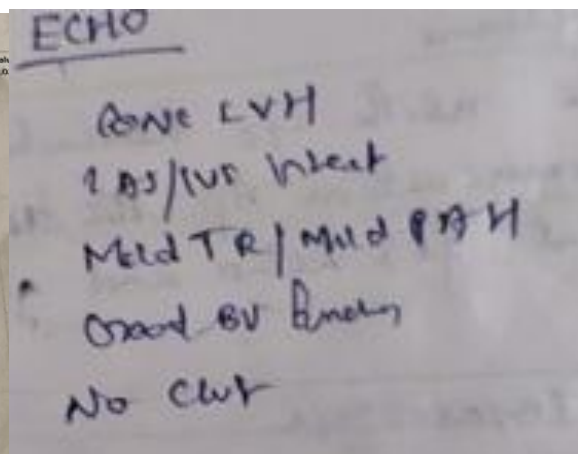 ECHO
Conc LVH
IAS/IVS Intact
Mild TR/Mild PAH
Good BV Function
No Clot